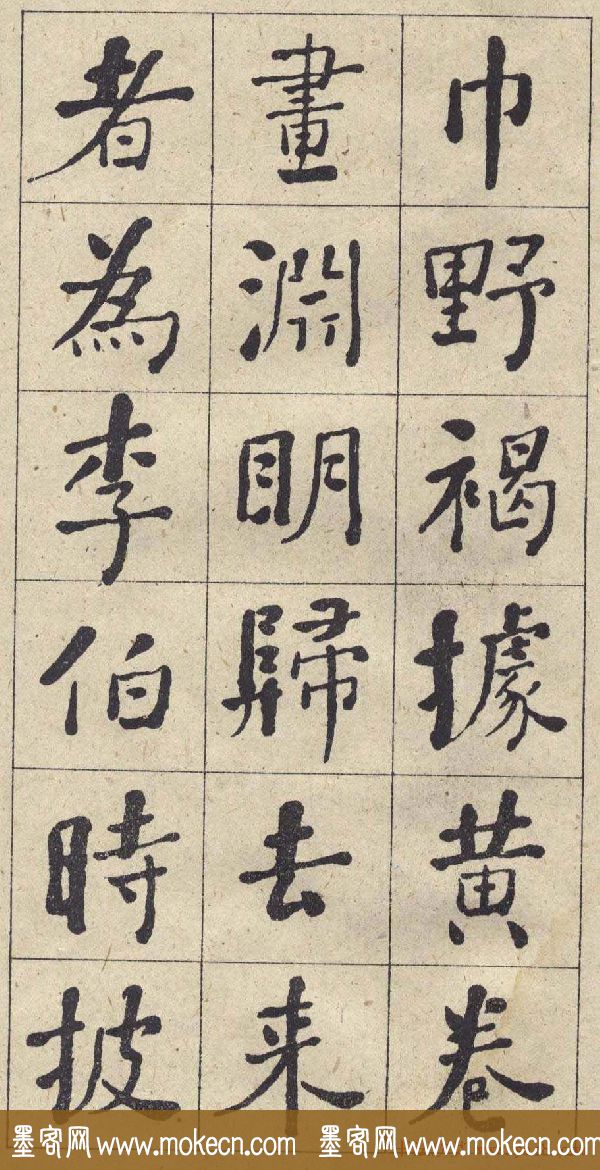 巾野褐據黄卷
畫淵明歸去来
者為李伯時披
墨客网 www.mokecn.com 墨客网 www.mokecn.com